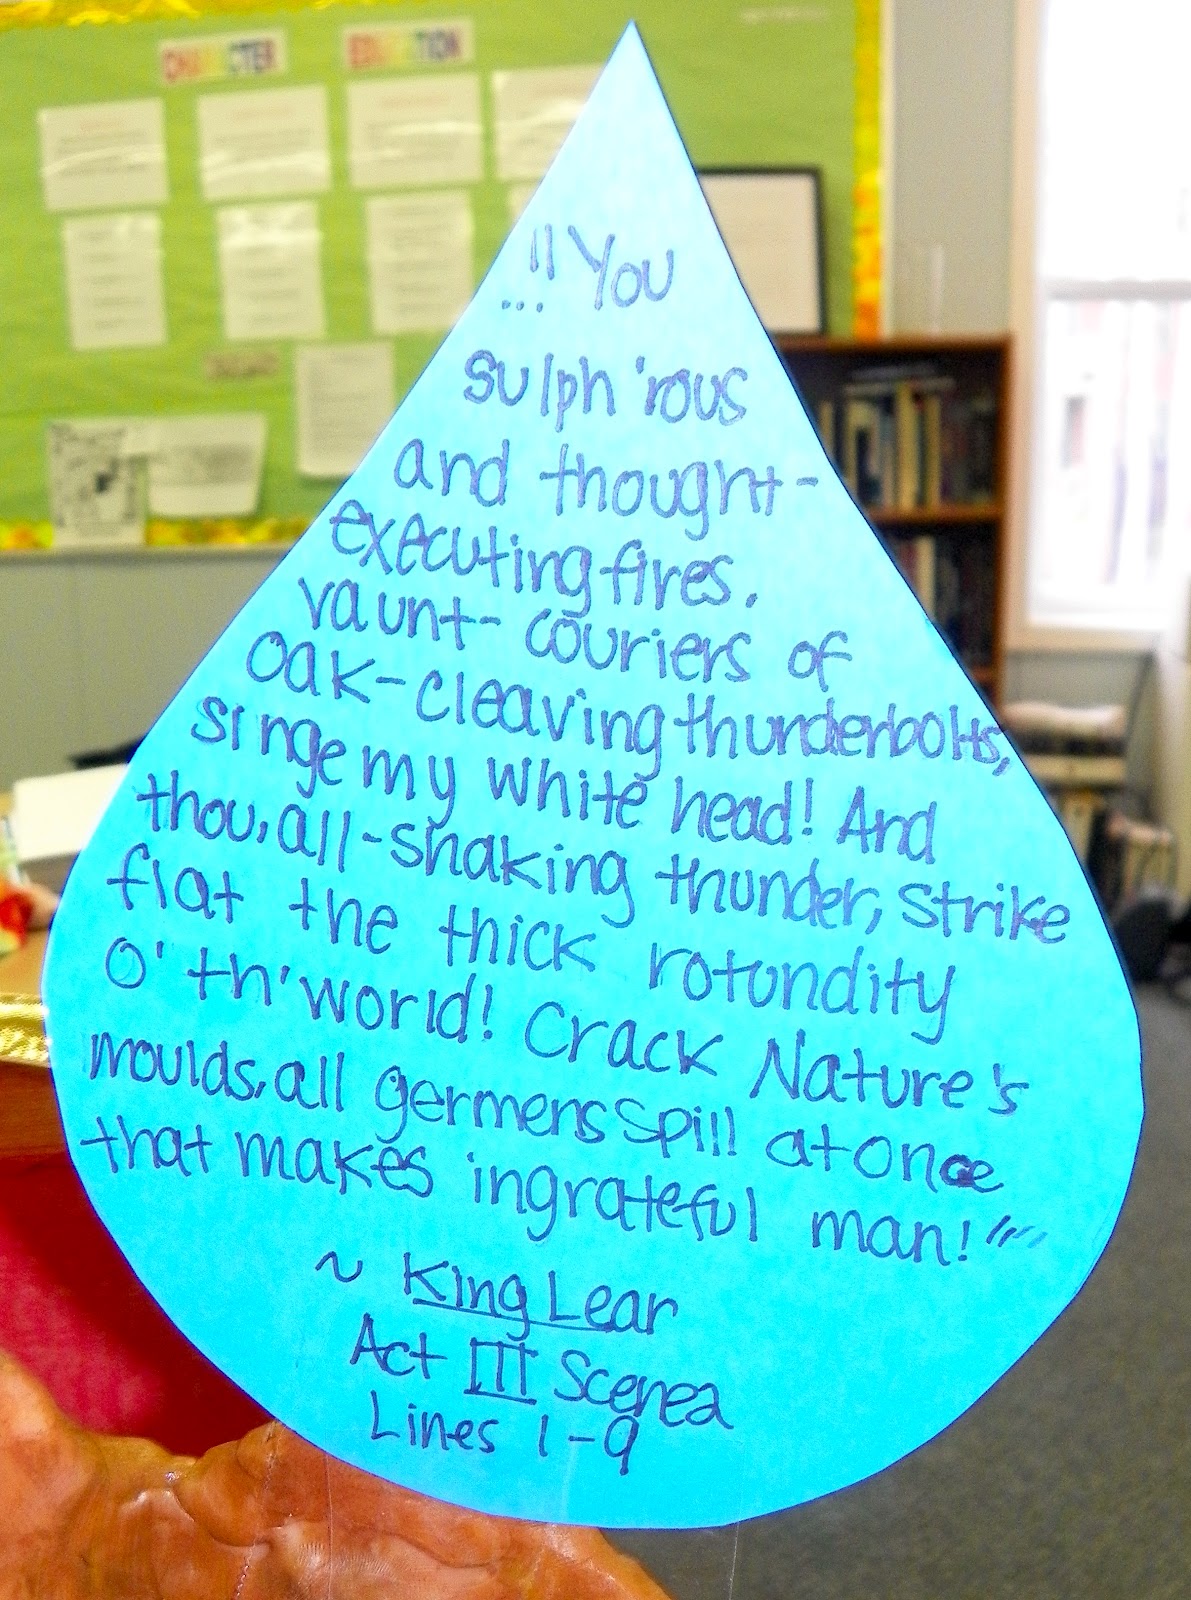 CHARACTER EDUCATION
..!! You
sulph'rous
and thought-
executing fires.
vaunt- couriers of
Oak-cleaving thunderbolts,
singe my white head! And
thou, all-shaking thunder, strike
flat the thick rotundity
O' th' world! Crack Nature's
moulds, all germens spill at once
that makes ingrateful man!""
~ King Lear
Act III Scene 2
Lines 1-9